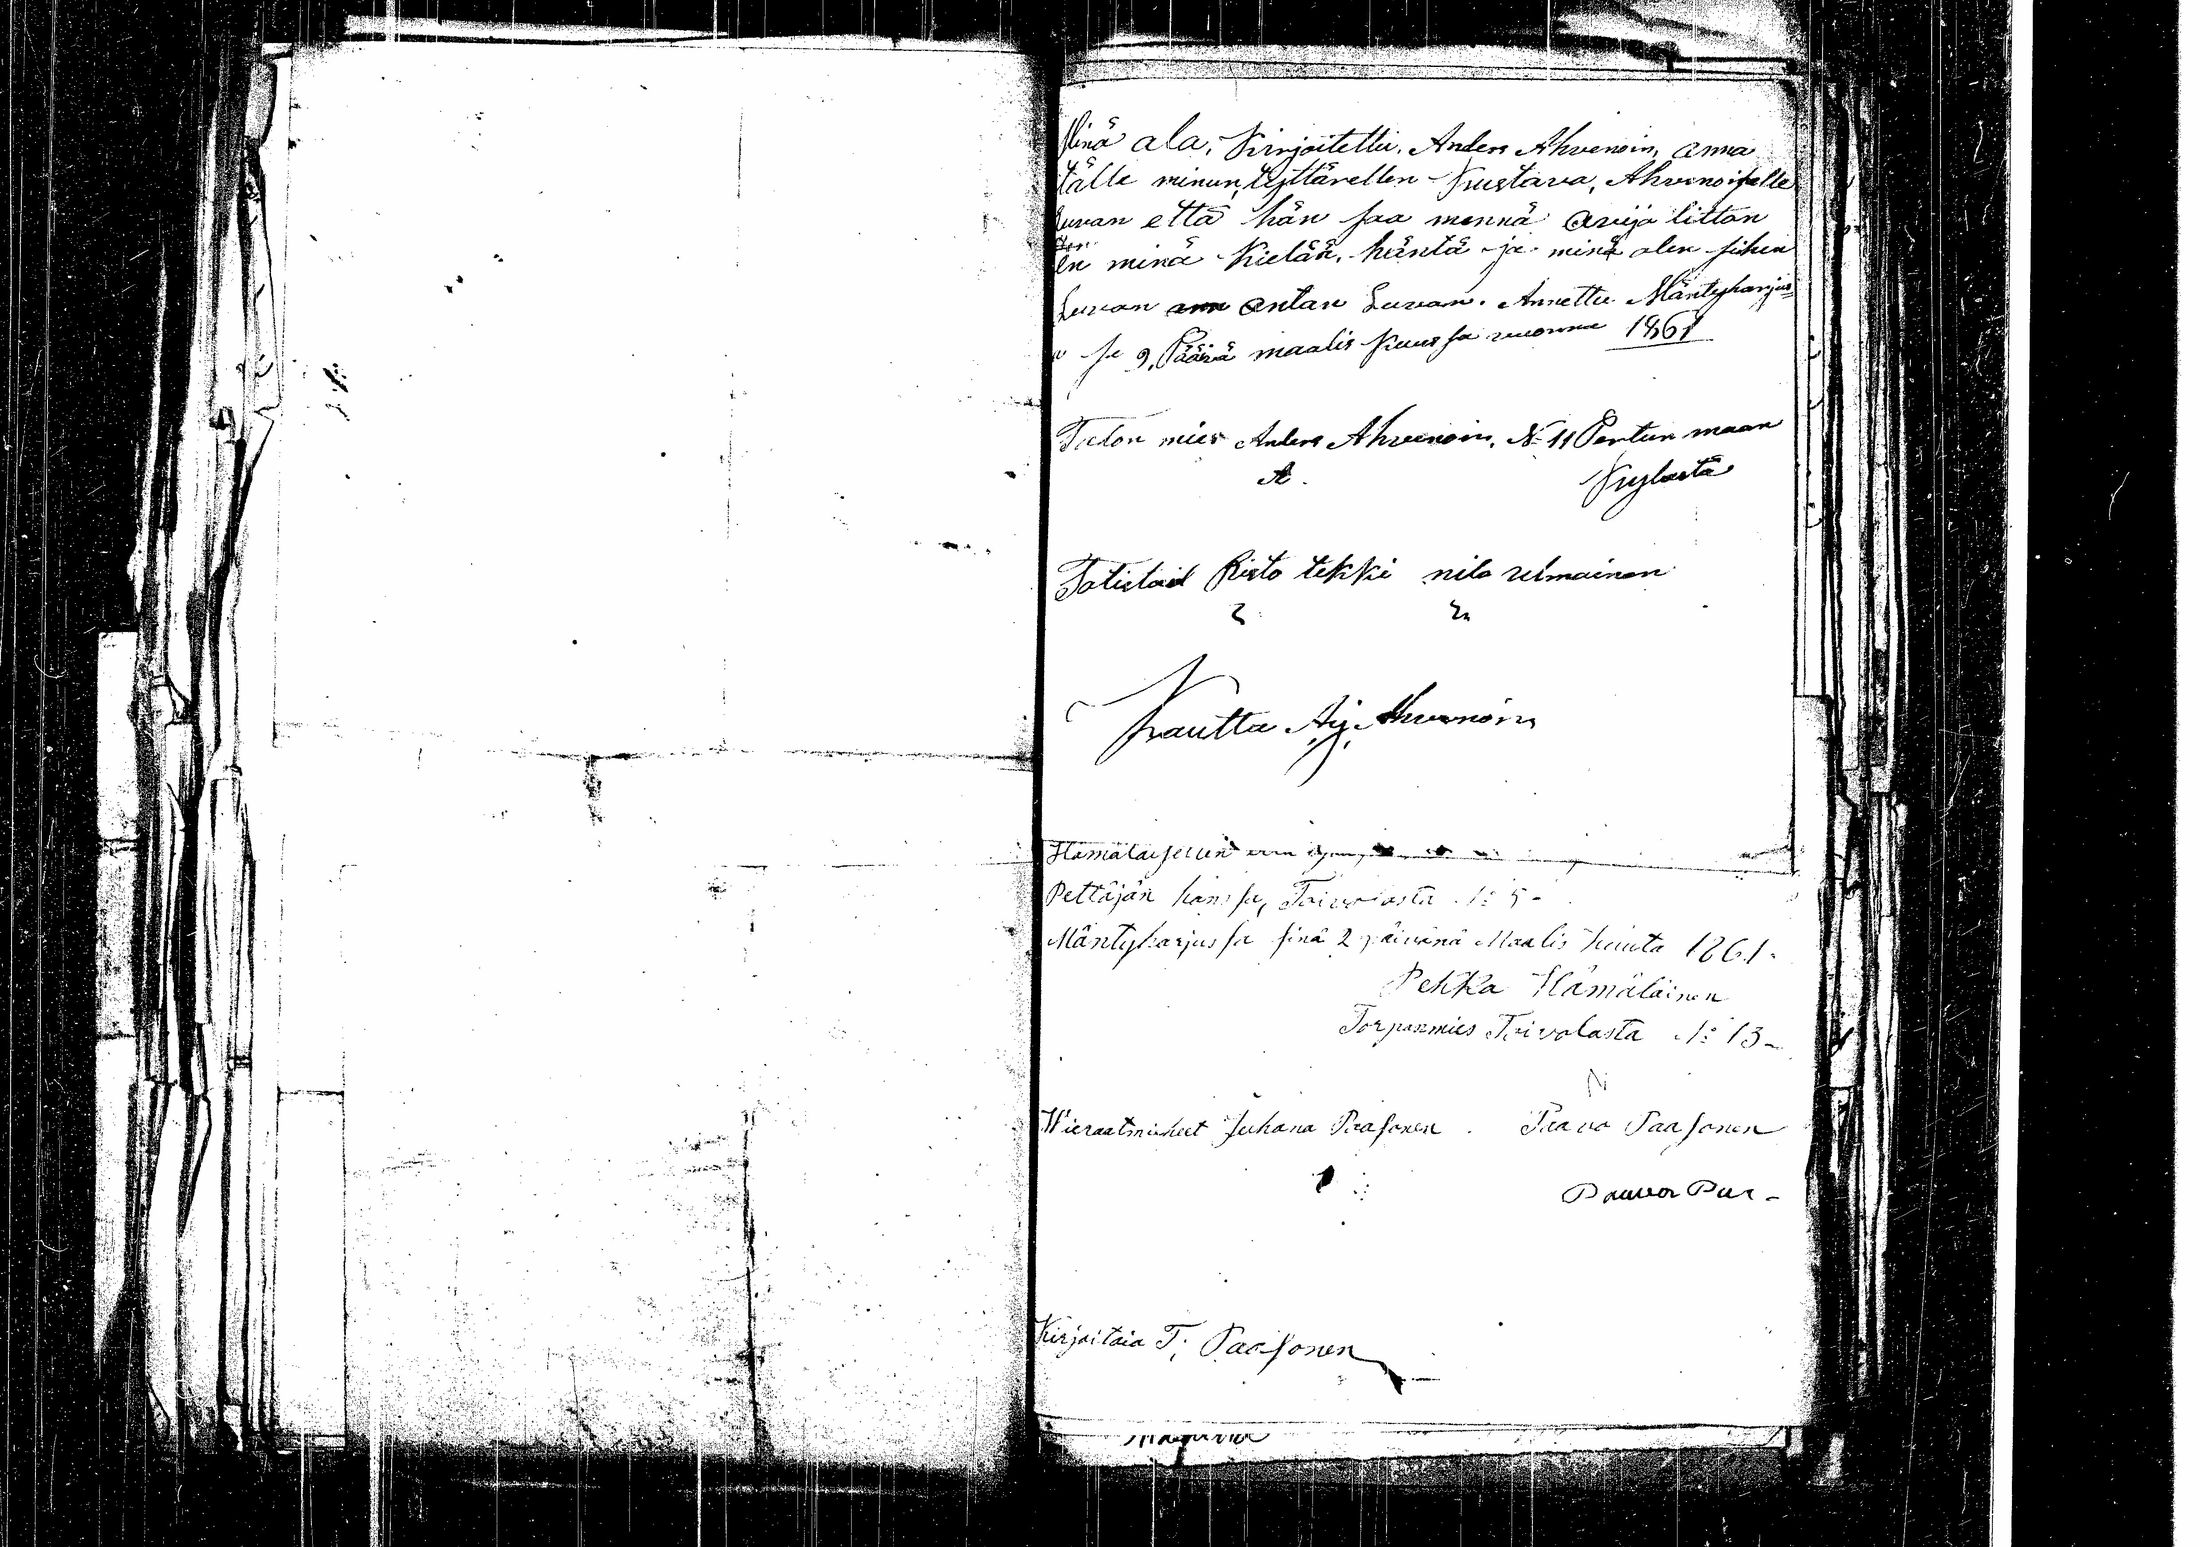 Minä ala, Kirjoitettu, Anders Ahvenoin, anna
tälle minun, tyttärellen Kustava, Ahvenoiselle
luvan että hän saa mennä avijo litton
en minä Kielää, häntä ja minä olen siihen
Luvan antan Luvan. Annettu Mäntyharjus=
sa 9, Päivä maalis Kuussa vuonna 1861
Talon mies Anders Ahvenoin, No 11 Pertun maan
A. Kylästä
Totistaid Risto tekki nils relmainen
Kautta Aj. Ahvenoin
Hämäläisellen
Pettäjän kanssa, Toivolasta No 5-
Mäntyharjussa sinä 2 päivänä Maalis kuuta 1861.
Pekka Hämäläinen
Torpanmies Toivolasta No 13-
Wieraatmiehet Juhana Paasonen. Paavo Paasonen
Kirjoitaia T; Paasonen